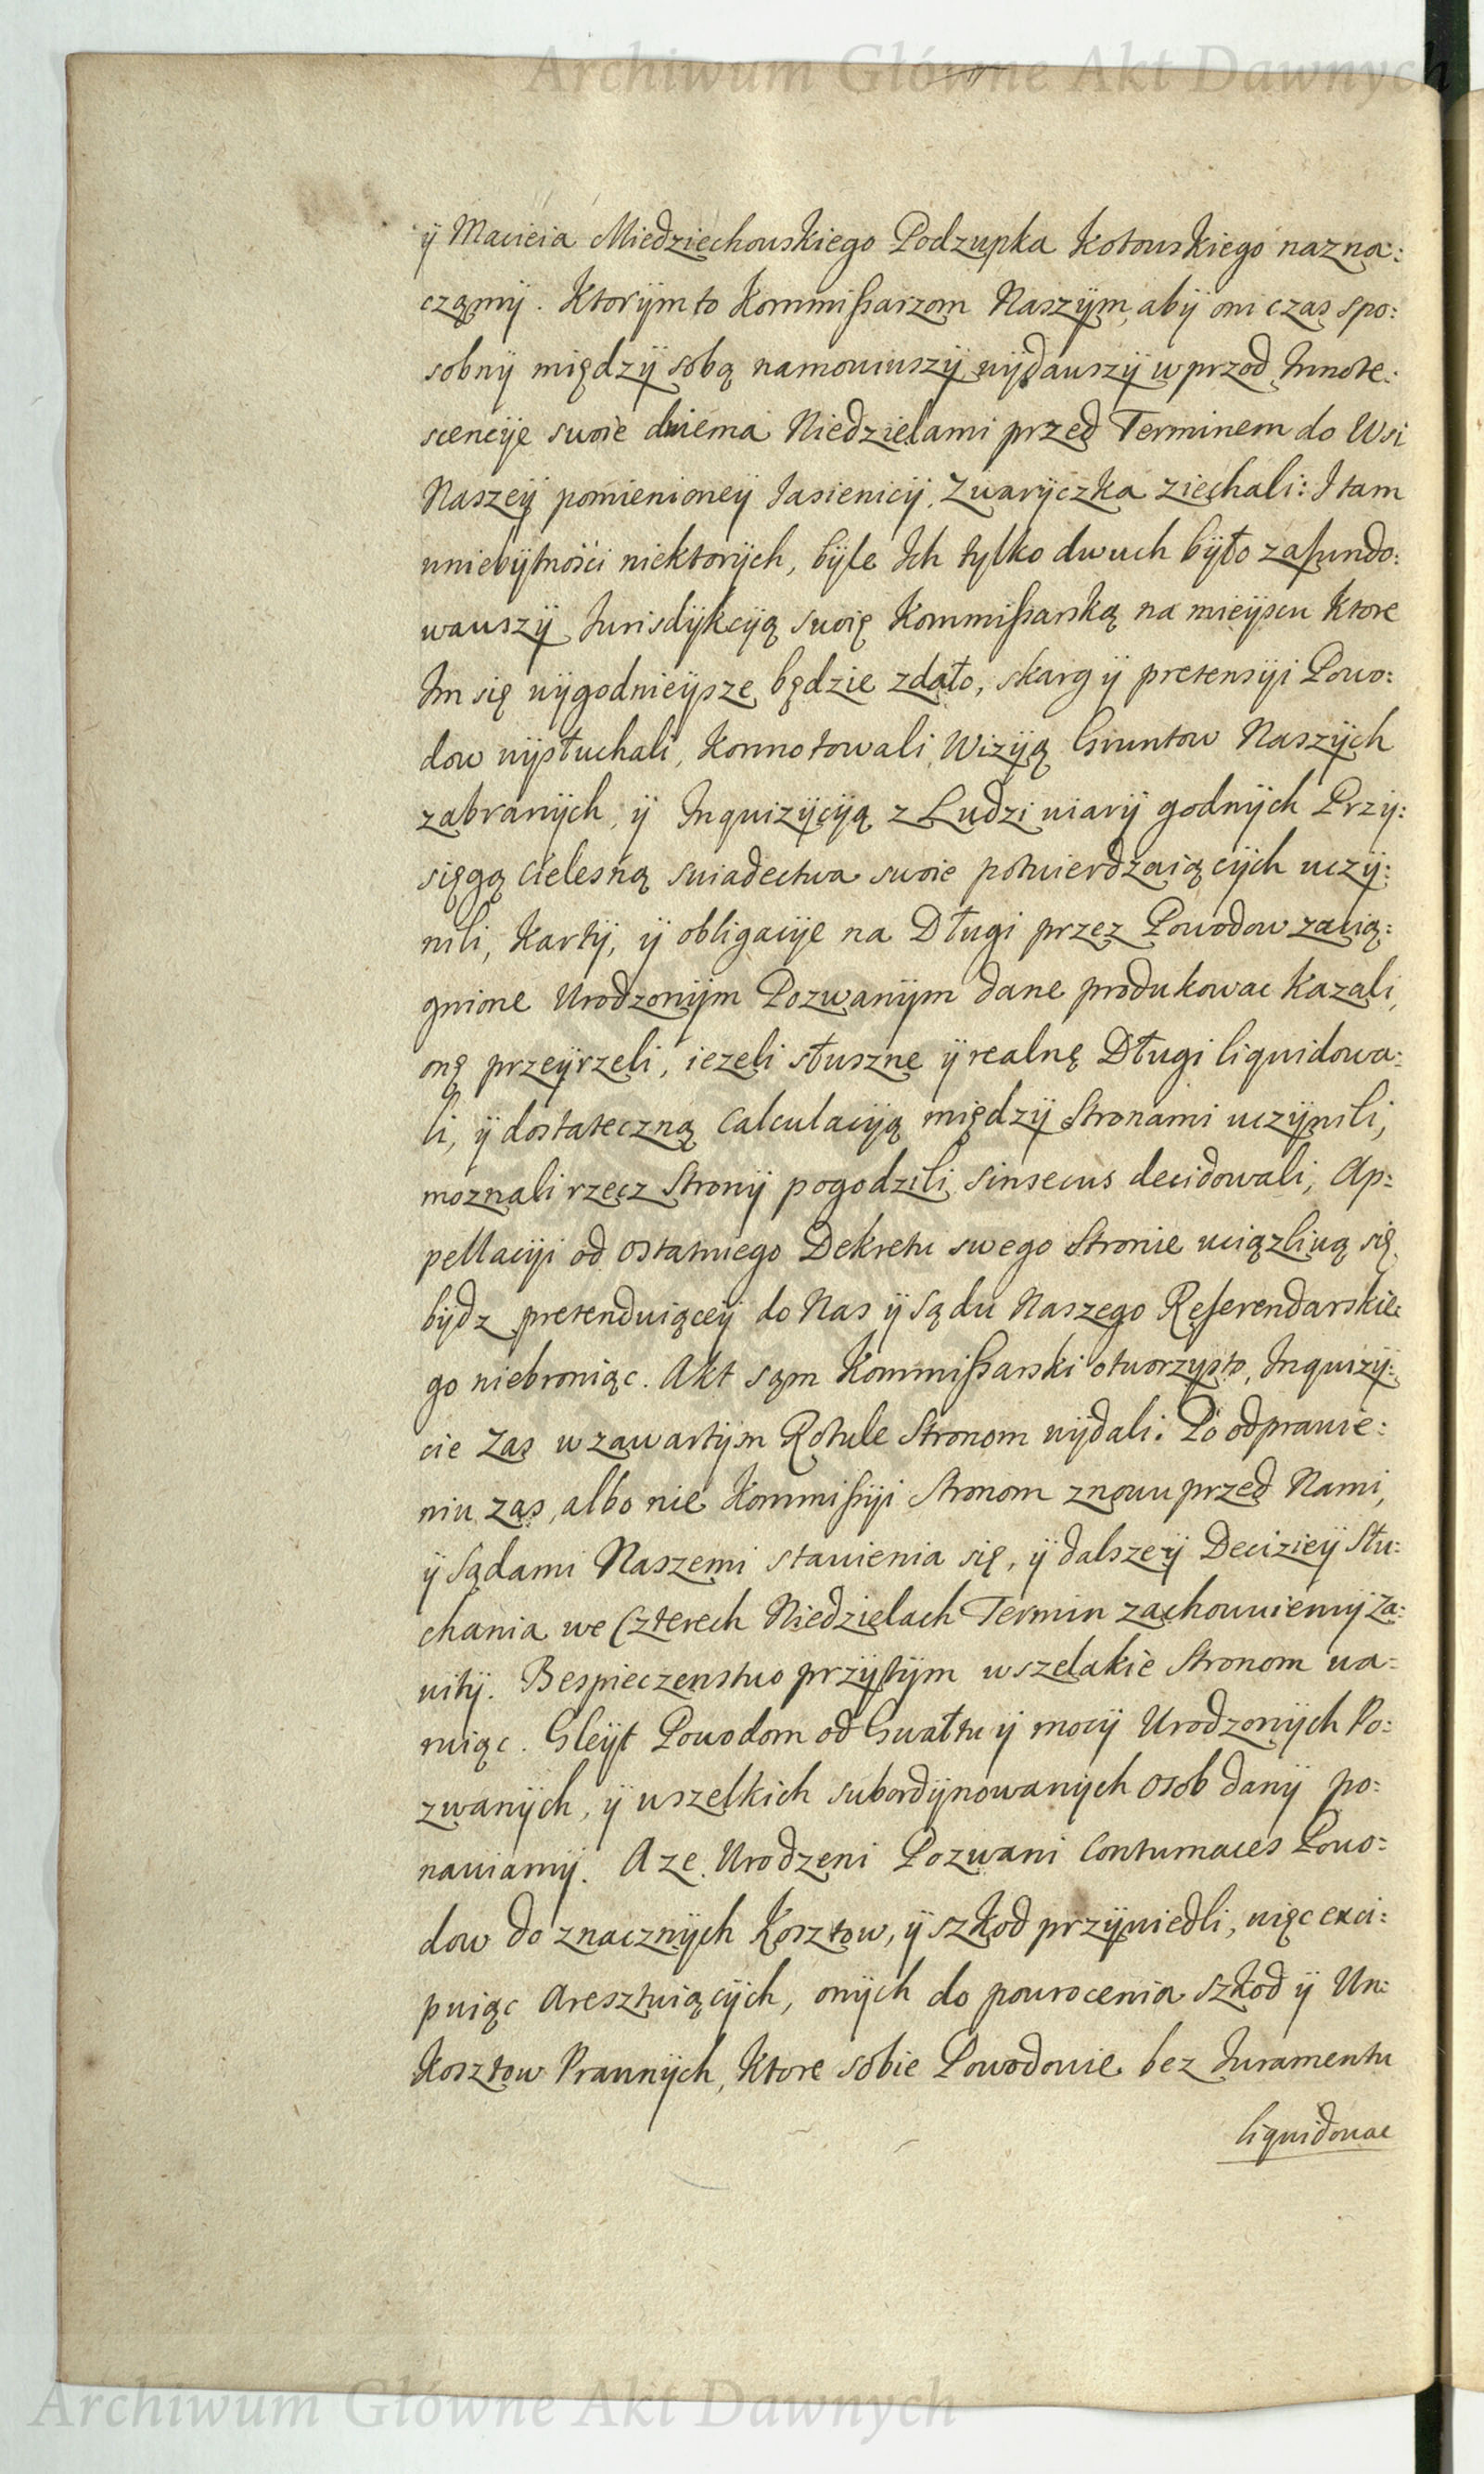 Archiwum Główne Akt Dawnych
ÿ Macieia Miedziechowskiego Podzupka Kotowskiego nazna:
czamÿ. Ktorÿm to Kommißarzom Naszÿm, abÿ oni czas spo:
sobnÿ międzÿ sobą namowiwszÿ wÿdawszÿ wprzod Innote:
scencÿe swoie dwiema Niedzielami przed Terminem do Wsi
Naszeÿ pomienioneÿ Jasienicÿ Zwarÿczka ziechali: I tam
wniebÿtności niektorÿch, bÿle Ich tylko dwuch bÿło zafundo:
wawszÿ Jurisdÿkcÿą swoię Kommißarską na mieÿscu Ktore
Im się wÿgodnieÿsze będzie zdało, skarg ÿ pretensÿi Powo:
dow wÿsłuchali, Konnotowali, Wizÿą Gruntow Naszÿch
zabranÿch, ÿ Inquizÿcÿą z Ludzi wiarÿ godnÿch Przÿ:
sięgą Cielesną swiadectwa swoie potwierdzaiącÿch uczÿ:
nili, Kartÿ, ÿ obligacÿe na Długi przez Powodow zacią:
gnione Urodzonÿm Pozwanÿm dane produkowac Kazali,
onę przeÿrzeli, iezeli słuszne ÿ realnę Długi liquidowa:
li, ÿ dostateczną Calculacÿą międzÿ Stronami uczÿnili,
moznali rzecz Stronÿ pogodzili, sinsecus decidowali, Ap:
pellacÿi od ostatniego Dekretu swego Stronie uciązliwą się
bÿdz pretenduiąceÿ do Nas ÿ Sądu Naszego Referendarskie:
go niebroniąc. Akt sam Kommißarski otworzysto, Inquizÿ:
cie Zas w zawartÿm Rotule Stronom wÿdali. Po odprawie:
niu zas, albo nie Kommißÿi Stronom znowu przed Nami,
ÿ Sądami Naszemi stawienia się, ÿ dalszeÿ Decizieÿ Słu:
chania we Czterech Niedzielach Termin zachowuiemÿ Za:
witÿ. Bespieczenstwo przÿtÿm wszelakie Stronom wa:
ruiąc. Gleÿt Powodom od Gwałtu ÿ mocÿ Urodzonÿch Po:
zwanÿch, ÿ wszelkich subordÿnowanÿch osob danÿ po:
nawiamÿ. A ze Urodzeni Pozwani Contumaces Powo:
dow do znacznÿch Kosztow, ÿ szkod przÿwiedli, więc exci:
puiąc Aresztuiącÿch, onÿch do powrocenia szkod ÿ Un:
kosztow Prawnÿch, Ktore sobie Powodowie bez Juramentu
liquidowac
Archiwum Główne Akt Dawnych